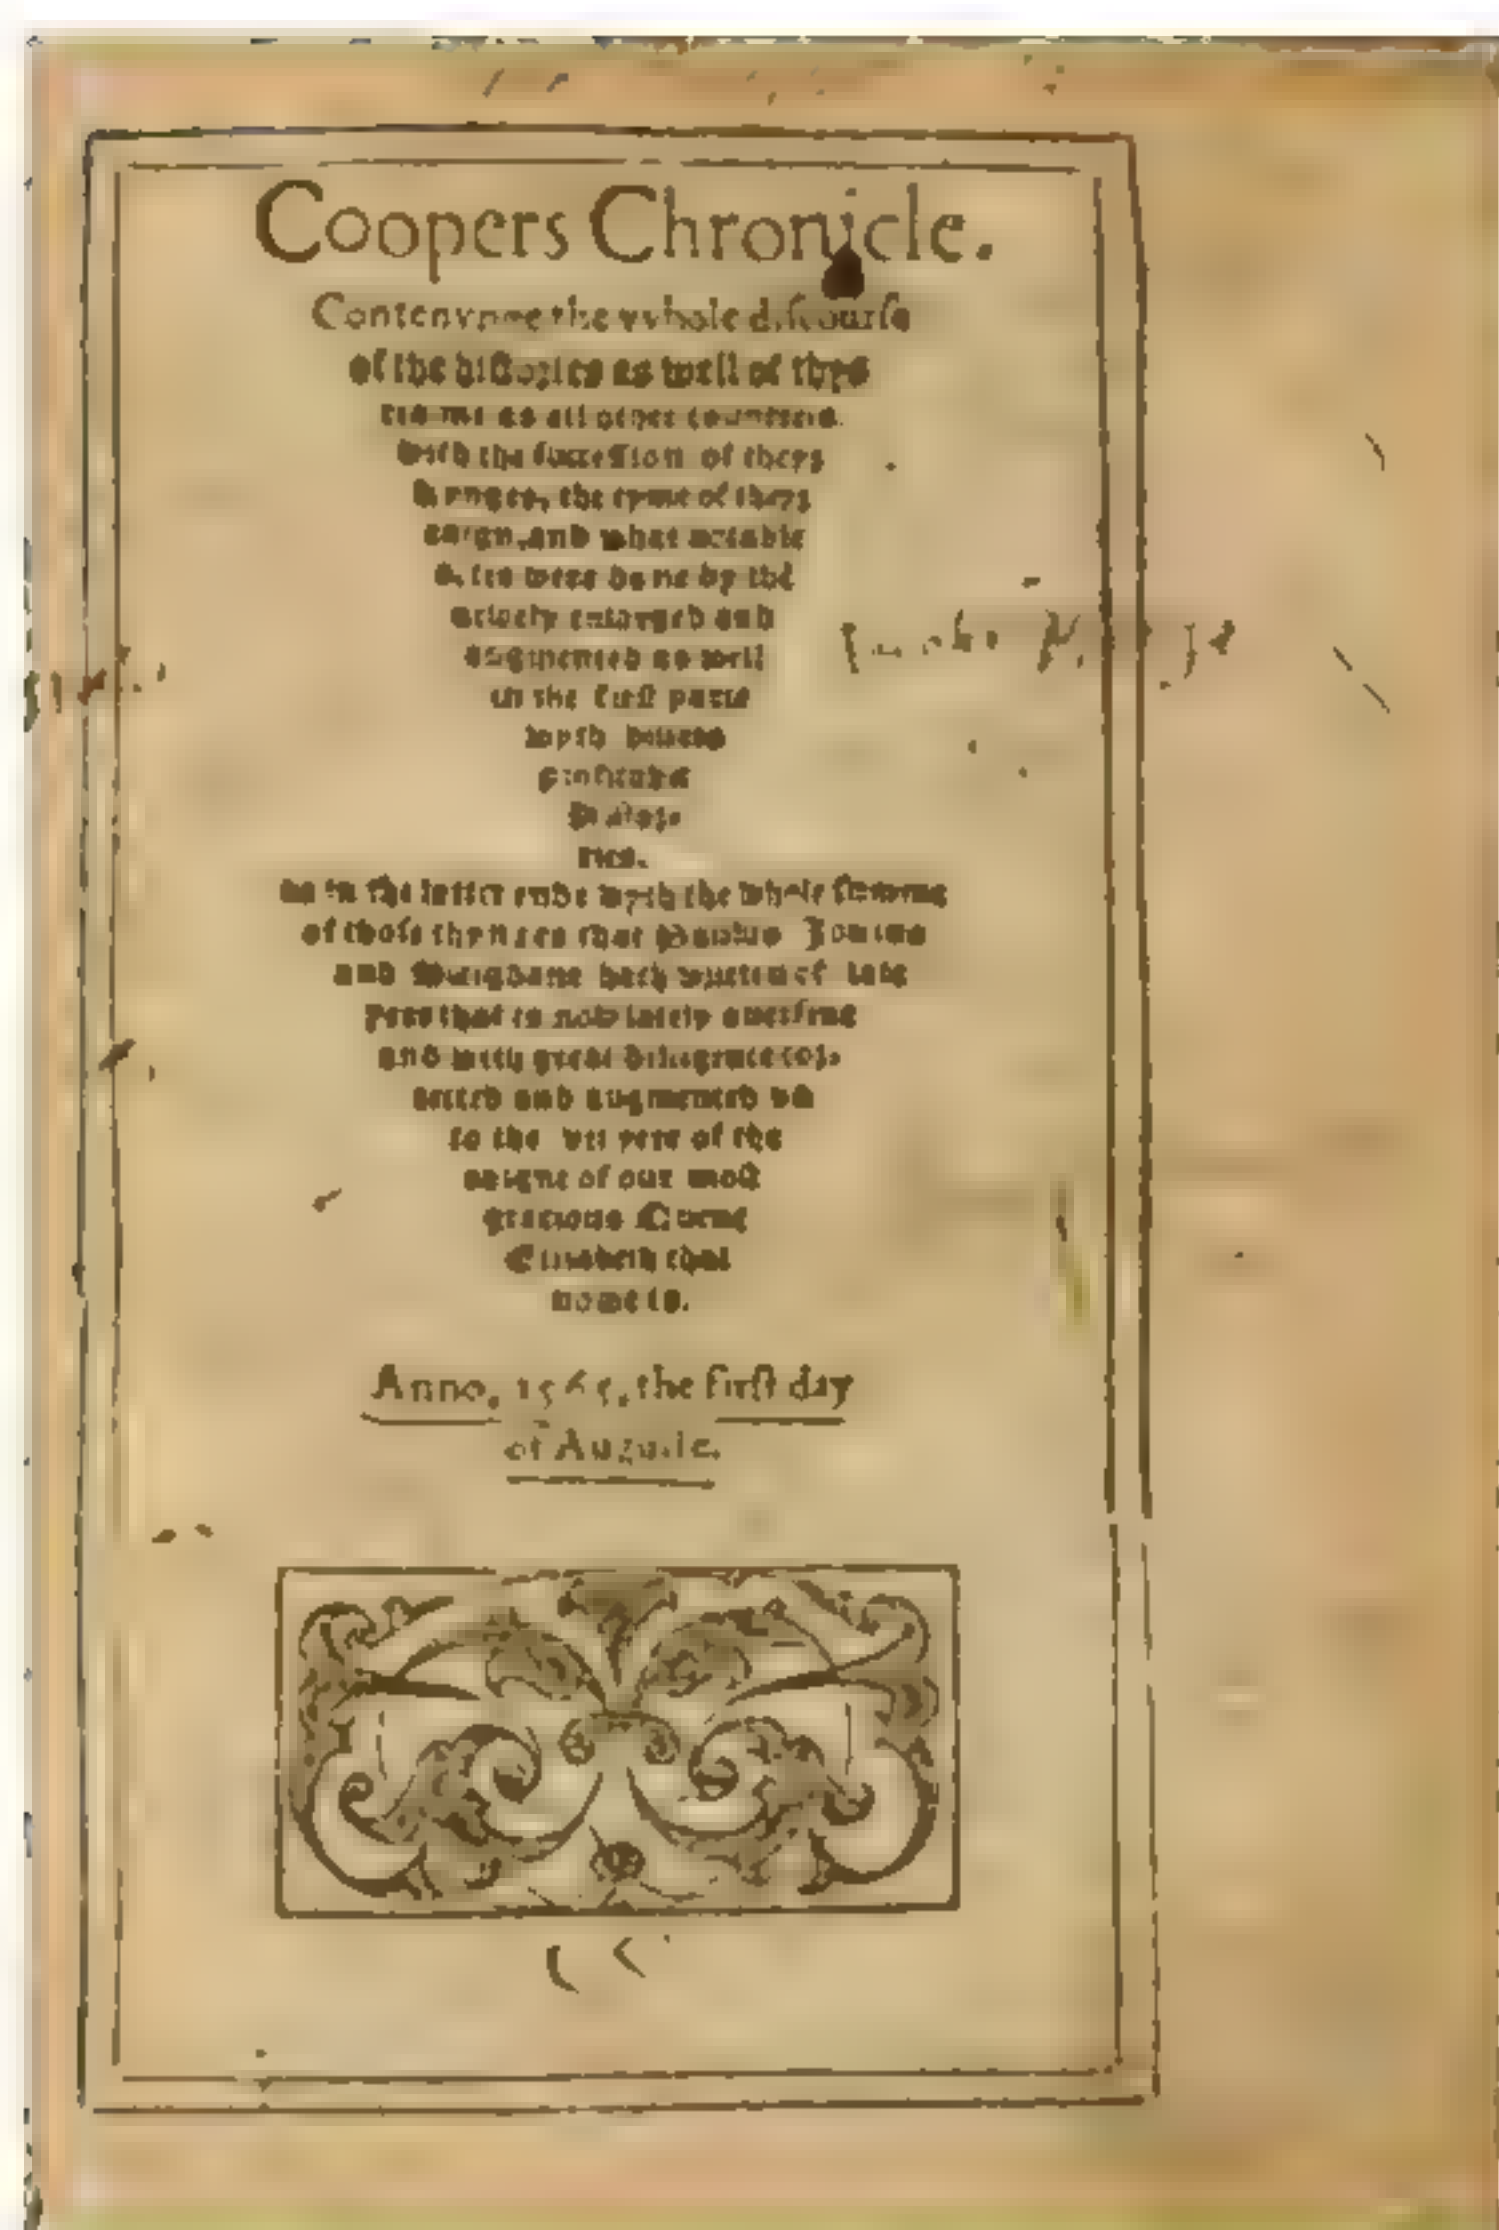 Coopers Chronicle.
Contenynge the vvhole diſcourſe
of the hiſtories as well of thys
realme as all other countreis.
with the ſucceſſion of theyr
kynges, the tyme of theyr
raign, and what notable
actes were done by thē
newely enlarged and
augmented as well
in the firſt parte
wyth diuers
profitable
Hiſto-
ries.
as in the latter ende wyth the whole ſumme
of thoſe thynges that Paulus Jouius
and Sleigdane hath written of late
yers that is now lately ouerſene
and with great diligence cor-
rected and augmented vn
to the vii yere of the
raigne of our moſt
gracious Quene
Elizabeth that
nowe is.
Anno, 1565, the firſt day
of Auguste.